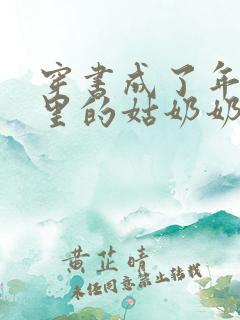 穿书成了年
里的姑奶奶
黄芷晴
未经同意禁止转载